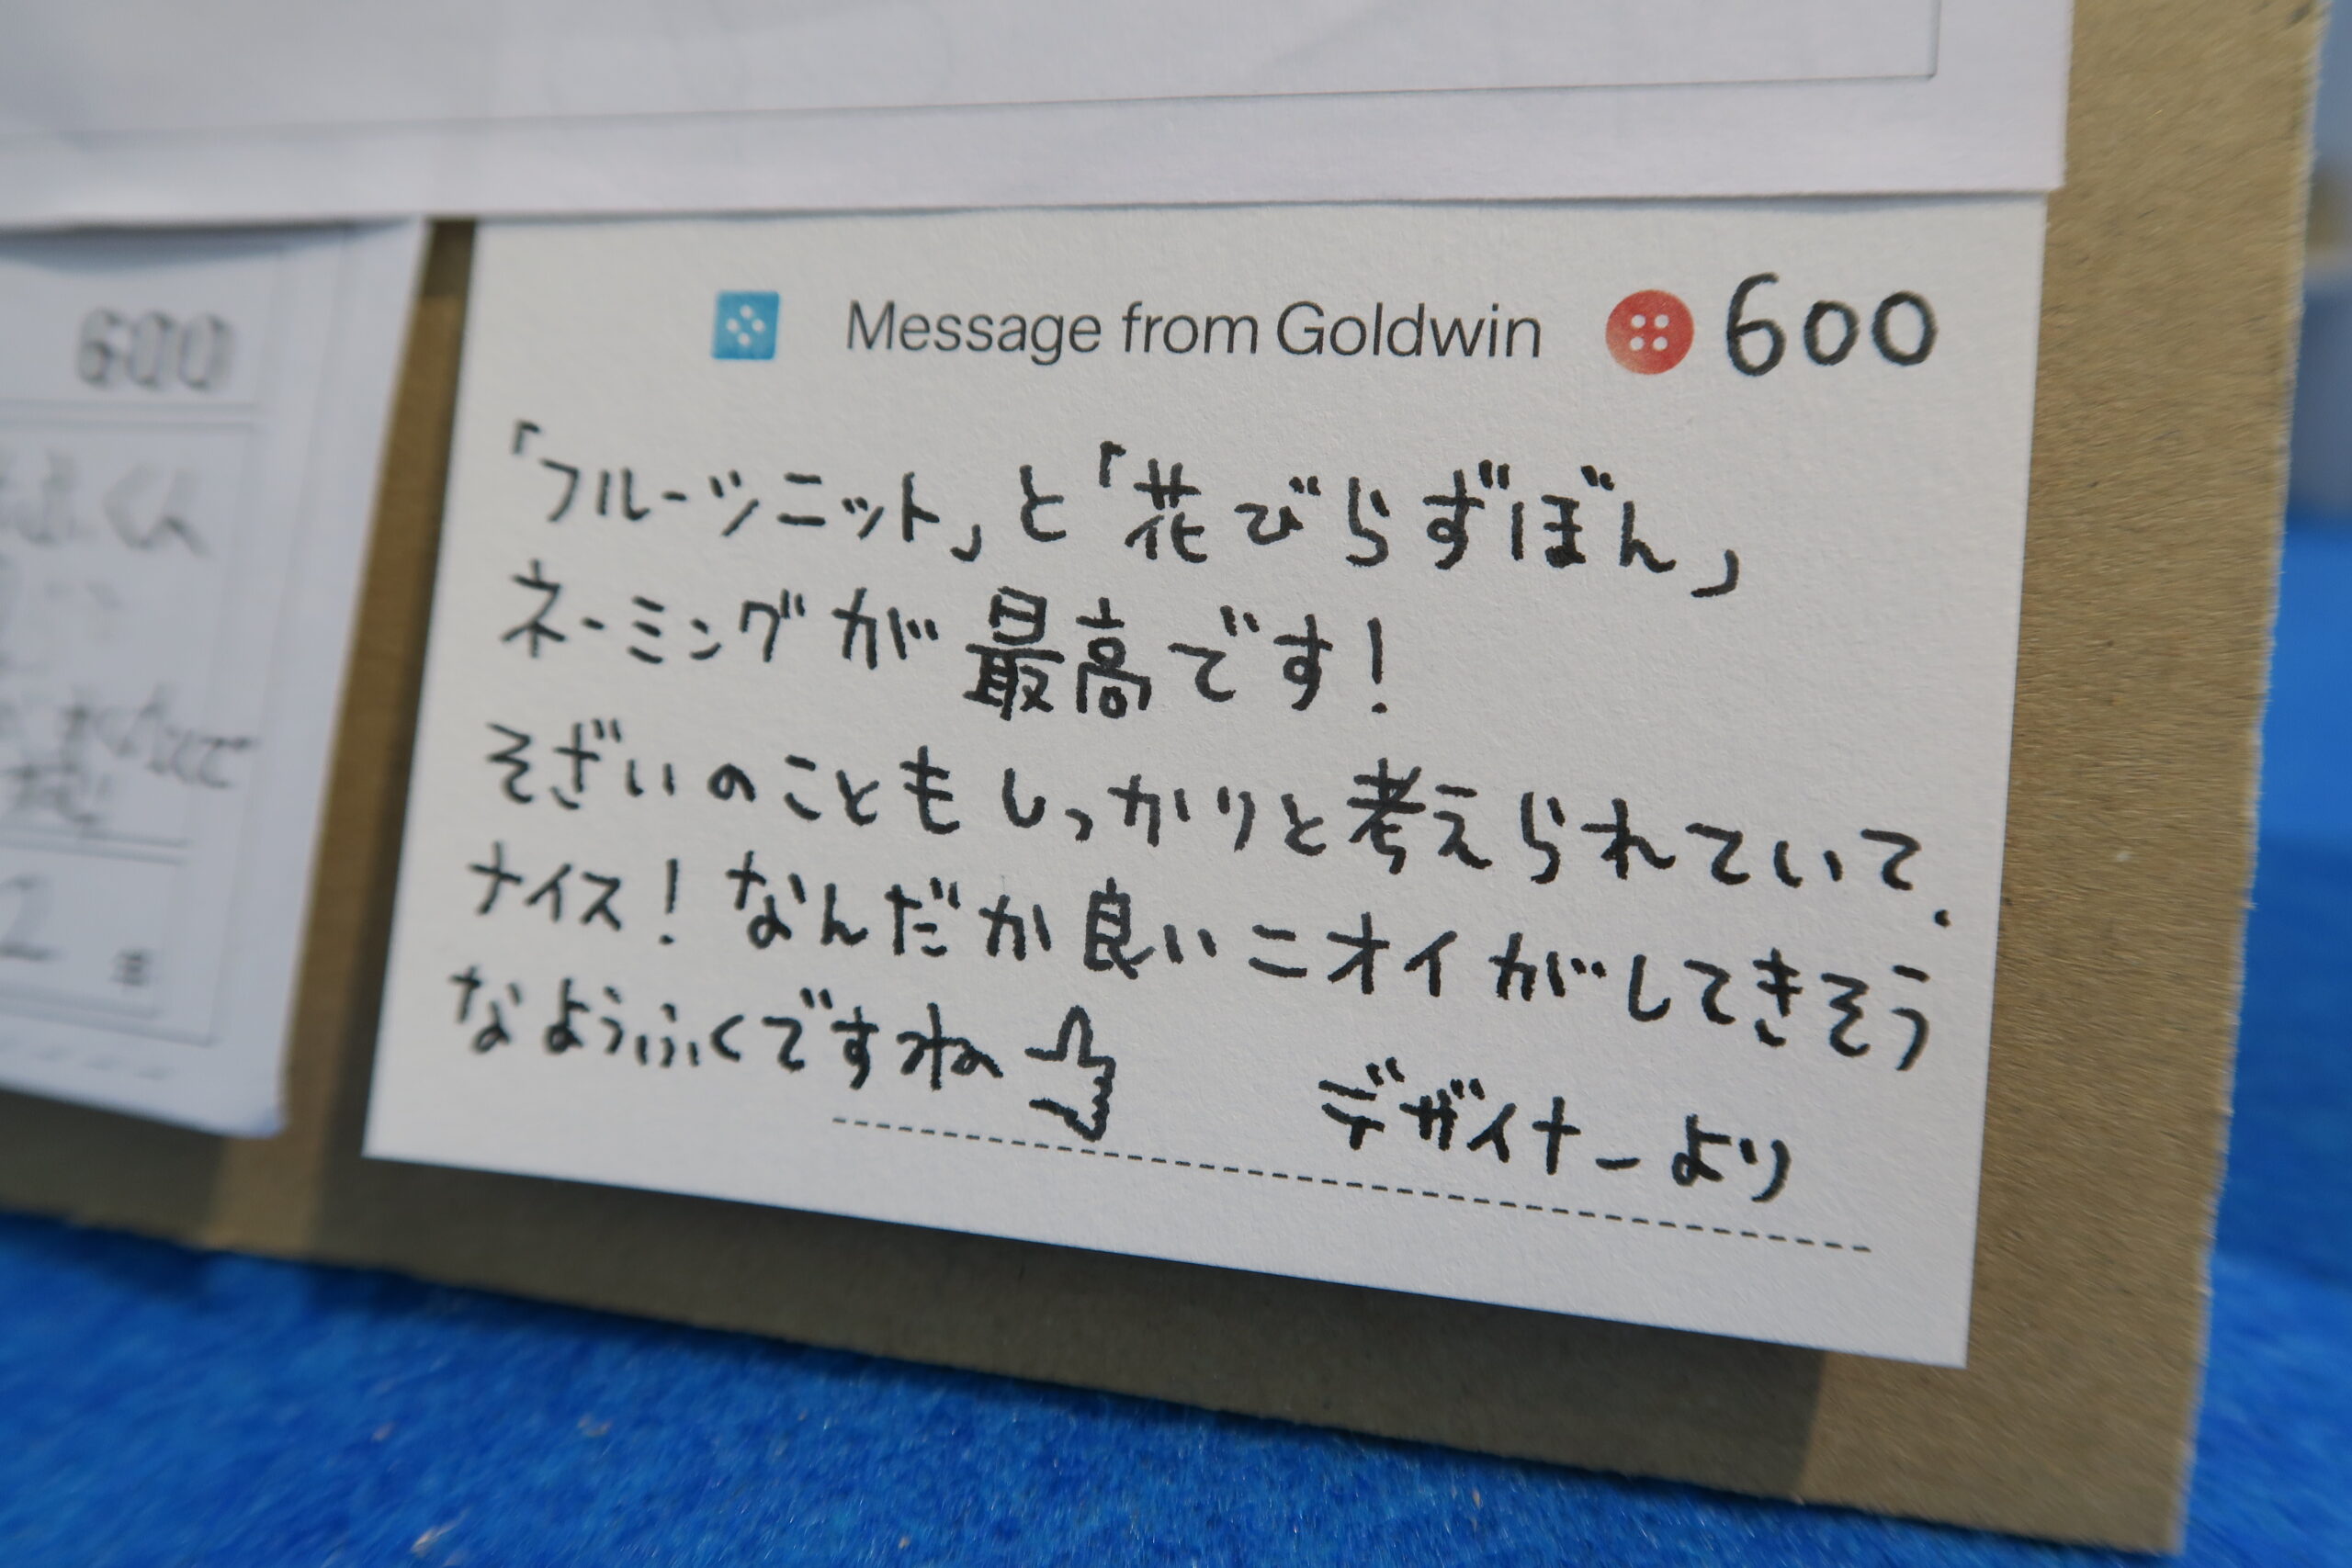 Message from Goldwin 600
「フルーツニット」と「花びらずぼん」
ネーミングが最高です!
そざいのこともしっかりと考えられていて、
ナイス! なんだか良いニオイがしてきそう
なようふくですね
デザイナーより
600
2